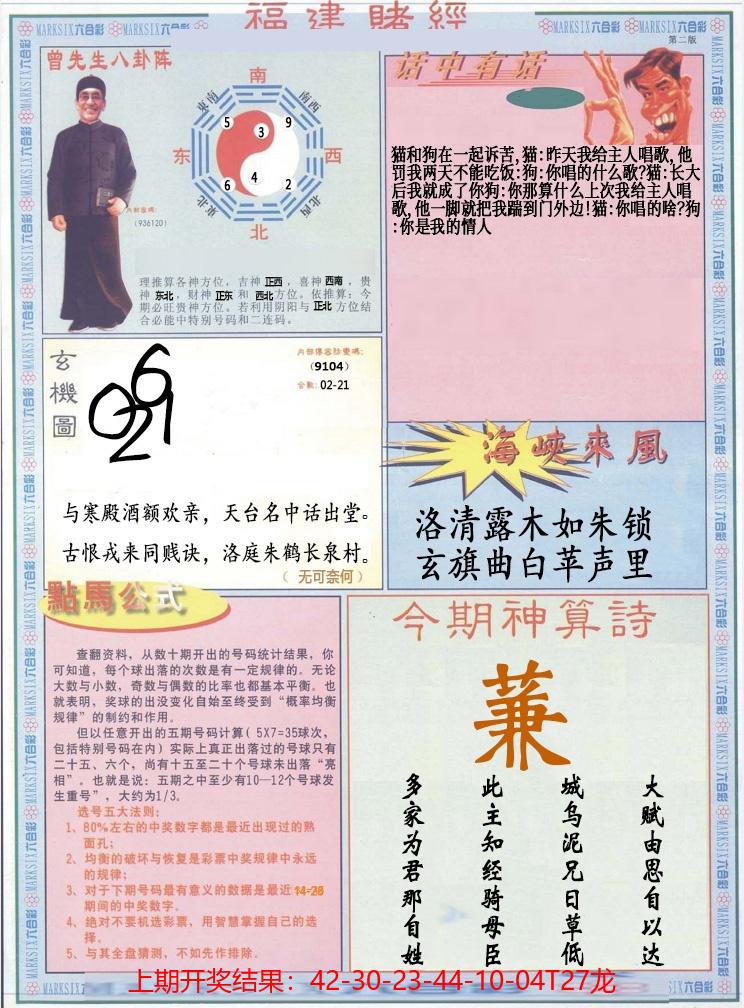 福建賭經
MARKSIX六合彩
第二版
曾先生八卦阵
南
东南
南西
5
9
3
东
西
6
4
2
东北
北西
北
内部密碼:
(936120)
理推算各神方位，吉神正西，喜神西南，贵
神东北，财神正东和西北方位。依推算：今
期必旺贵神方位。若利用阴阳与正北方位结
合必能中特别号码和二连码。
话中有话
猫和狗在一起诉苦,猫:昨天我给主人唱歌,他
罚我两天不能吃饭:狗:你唱的什么歌?猫:长大
后我就成了你狗:你那算什么上次我给主人唱
歌,他一脚就把我踹到门外边!猫:你唱的啥?狗
:你是我的情人
玄機圖
(9104)
合数: 02-21
与寒殿酒额欢亲，天台名中话出堂。
古恨戎来同贱诀，洛庭朱鹤长泉村。
（ 无可奈何 ）
海峽來風
洛清露木如朱锁
玄旗曲白苹声里
點馬公式
查翻资料，从数十期开出的号码统计结果，你
可知道，每个球出落的次数是有一定规律的。无论
大数与小数，奇数与偶数的比率也都基本平衡。也
就表明，奖球的出没变化自始至终受到“概率均衡
规律”的制约和作用。
但以任意开出的五期号码计算( 5X7=35球次，
包括特别号码在内) 实际上真正出落过的号球只有
二十五、六个，尚有十五至二十个号球未出落“亮
相”。也就是说：五期之中至少有10—12个号球发
生重号”，大约为1/3。
选号五大法则:
1、80%左右的中奖数字都是最近出现过的熟
面孔;
2、均衡的破坏与恢复是彩票中奖规律中永远
的规律;
3、对于下期号码最有意义的数据是最近14-26
期间的中奖数字。
4、绝对不要机选彩票，用智慧掌握自己的选
择。
5、与其全盘猜测，不如先作排除.
今期神算詩
蒹
大赋由思自以达
城乌泥兄日草低
此主知经骑母臣
多家为君那自姓
上期开奖结果：42-30-23-44-10-04T27龙